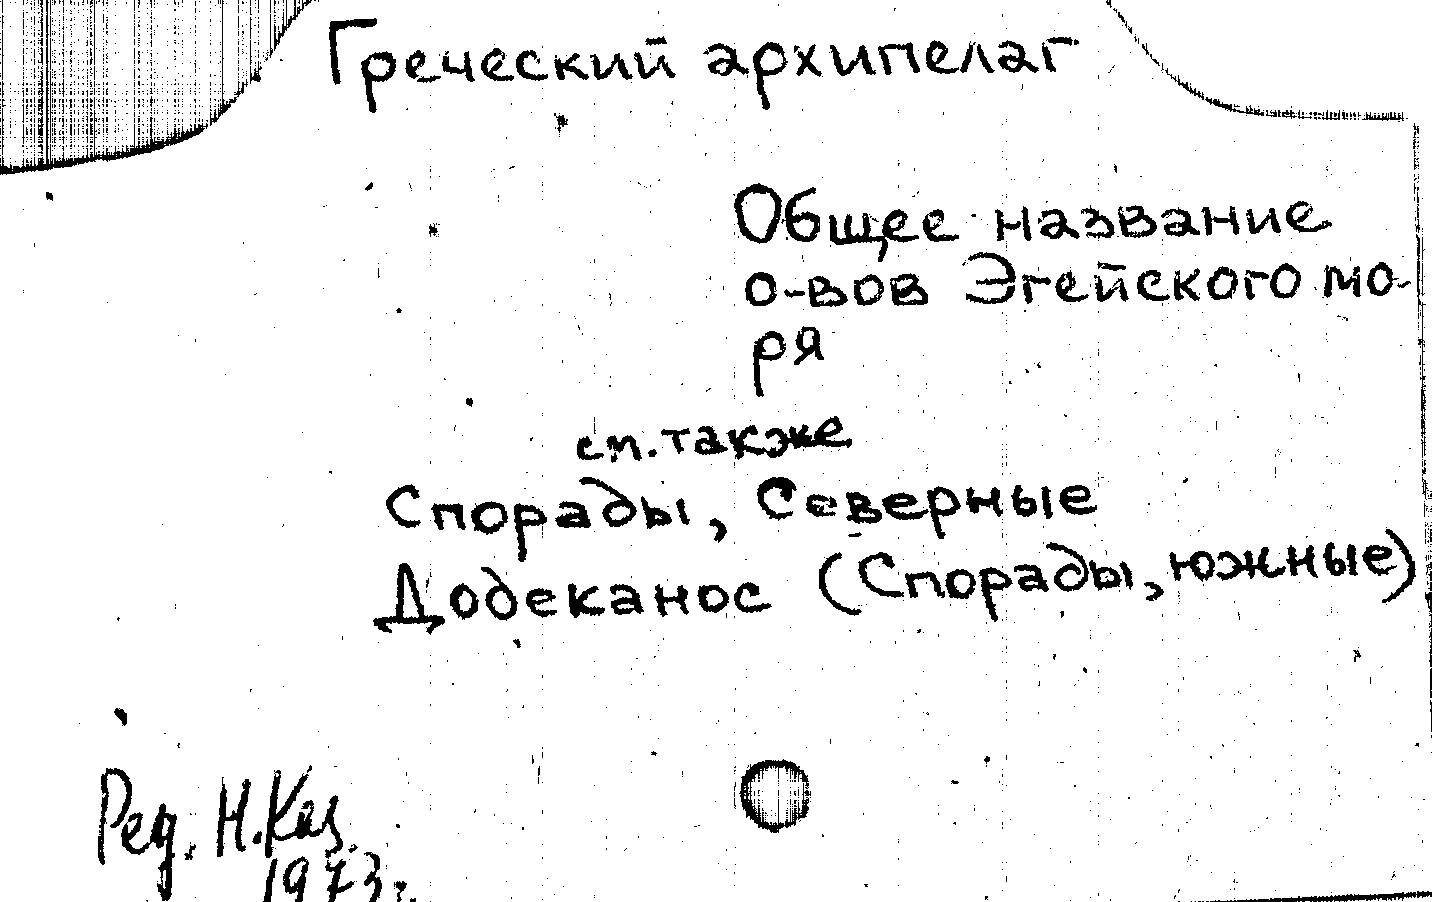 Греческий архипелаг
Общее название
о-вов Эгейского мо-
ря
см. также
Спорады, Северные
Додеканос (Спорады, южные)
Ред. Н. Каз.
1973г.